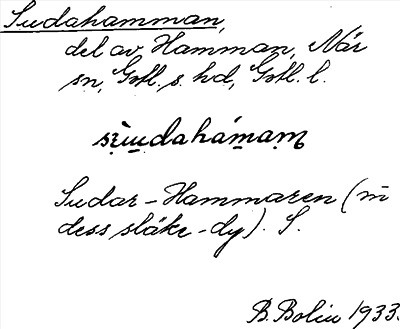 Sudahamman,
del av Hamman, När
sn, Gotl. s. hd, Gotl. l.
Sudar-Hammaren (m
dess släke-dy). S.
B. Bolin 1933.